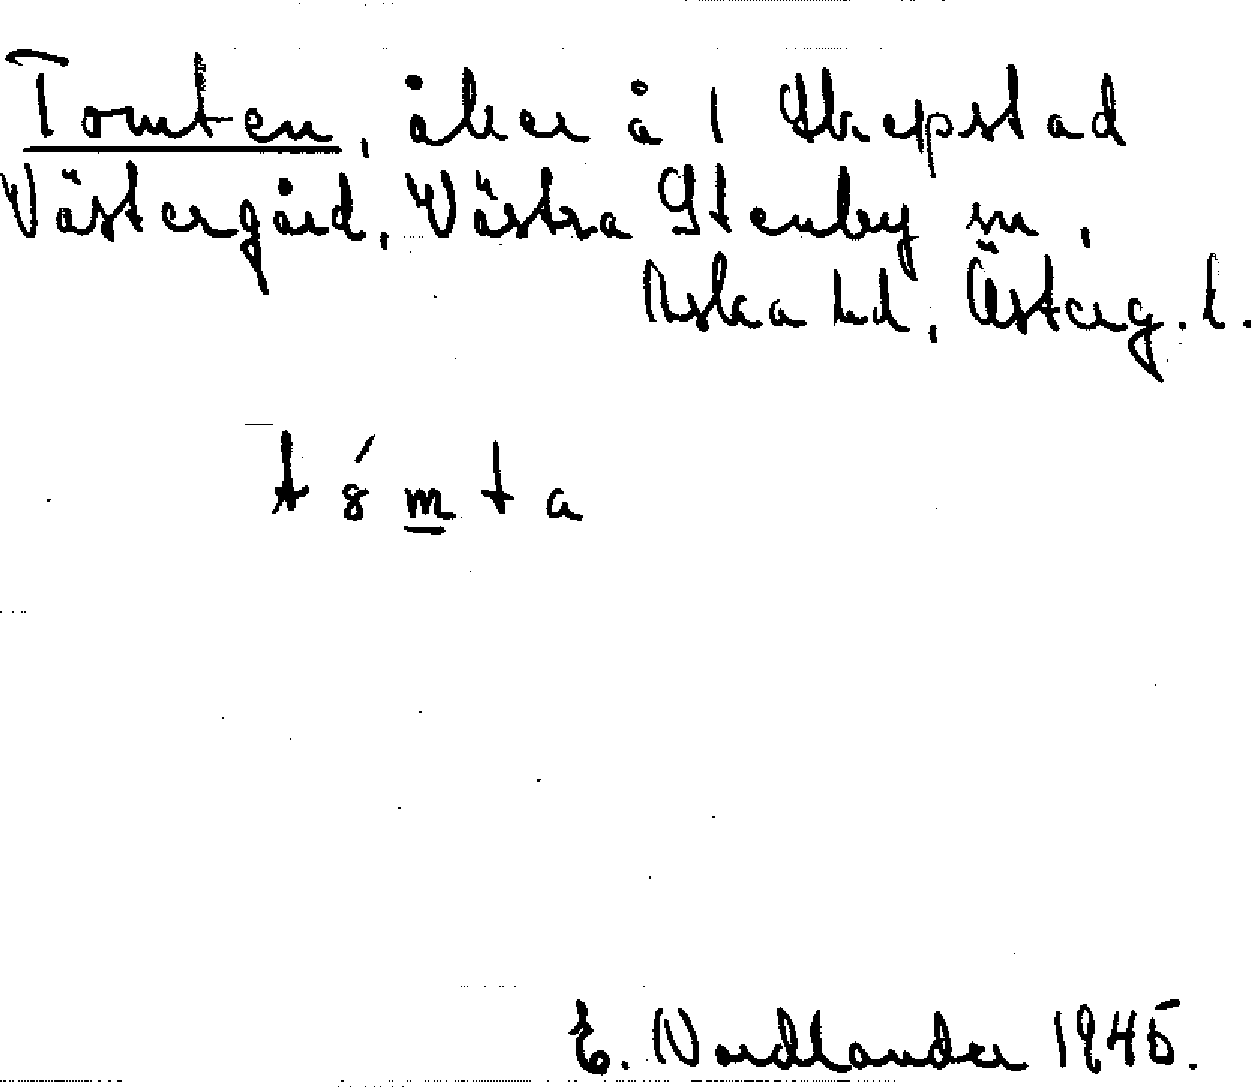 Tomten, åker å 1 Skepstad
Västergård, Västra Stenby sn,
Aska hd, Österg. l.
t ó m t a
E. Nordlander 1945.